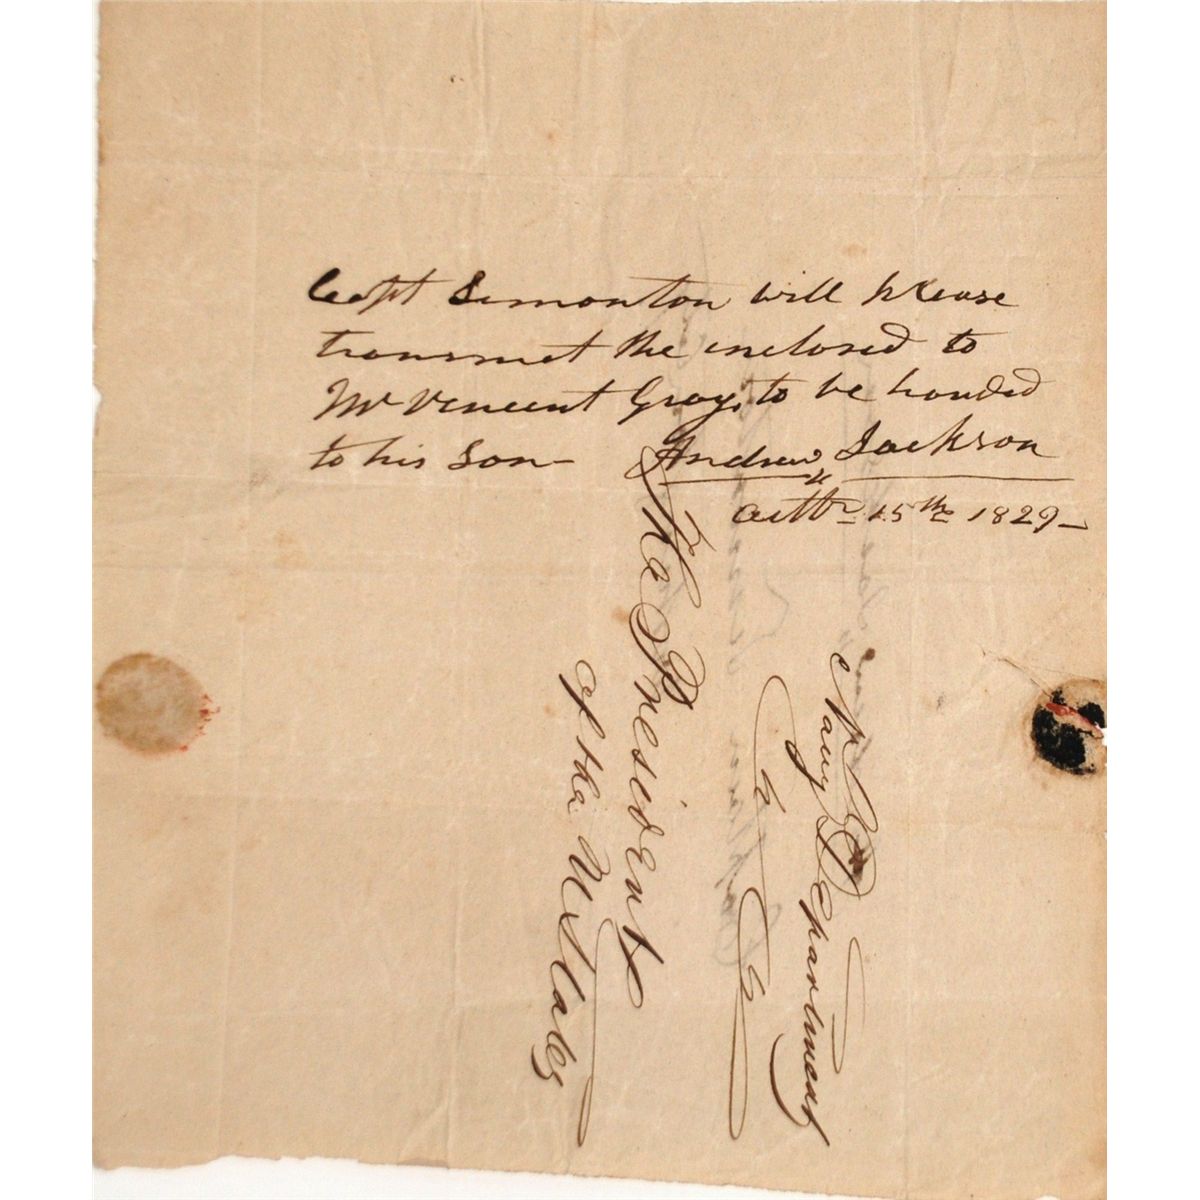 Capt Simonton will please
transmit the inclosed to
Mr Vincent Gray, to be handed
to his Son— Andrew Jackson
octbr 15th 1829—
Navy Department
The President
of the U States